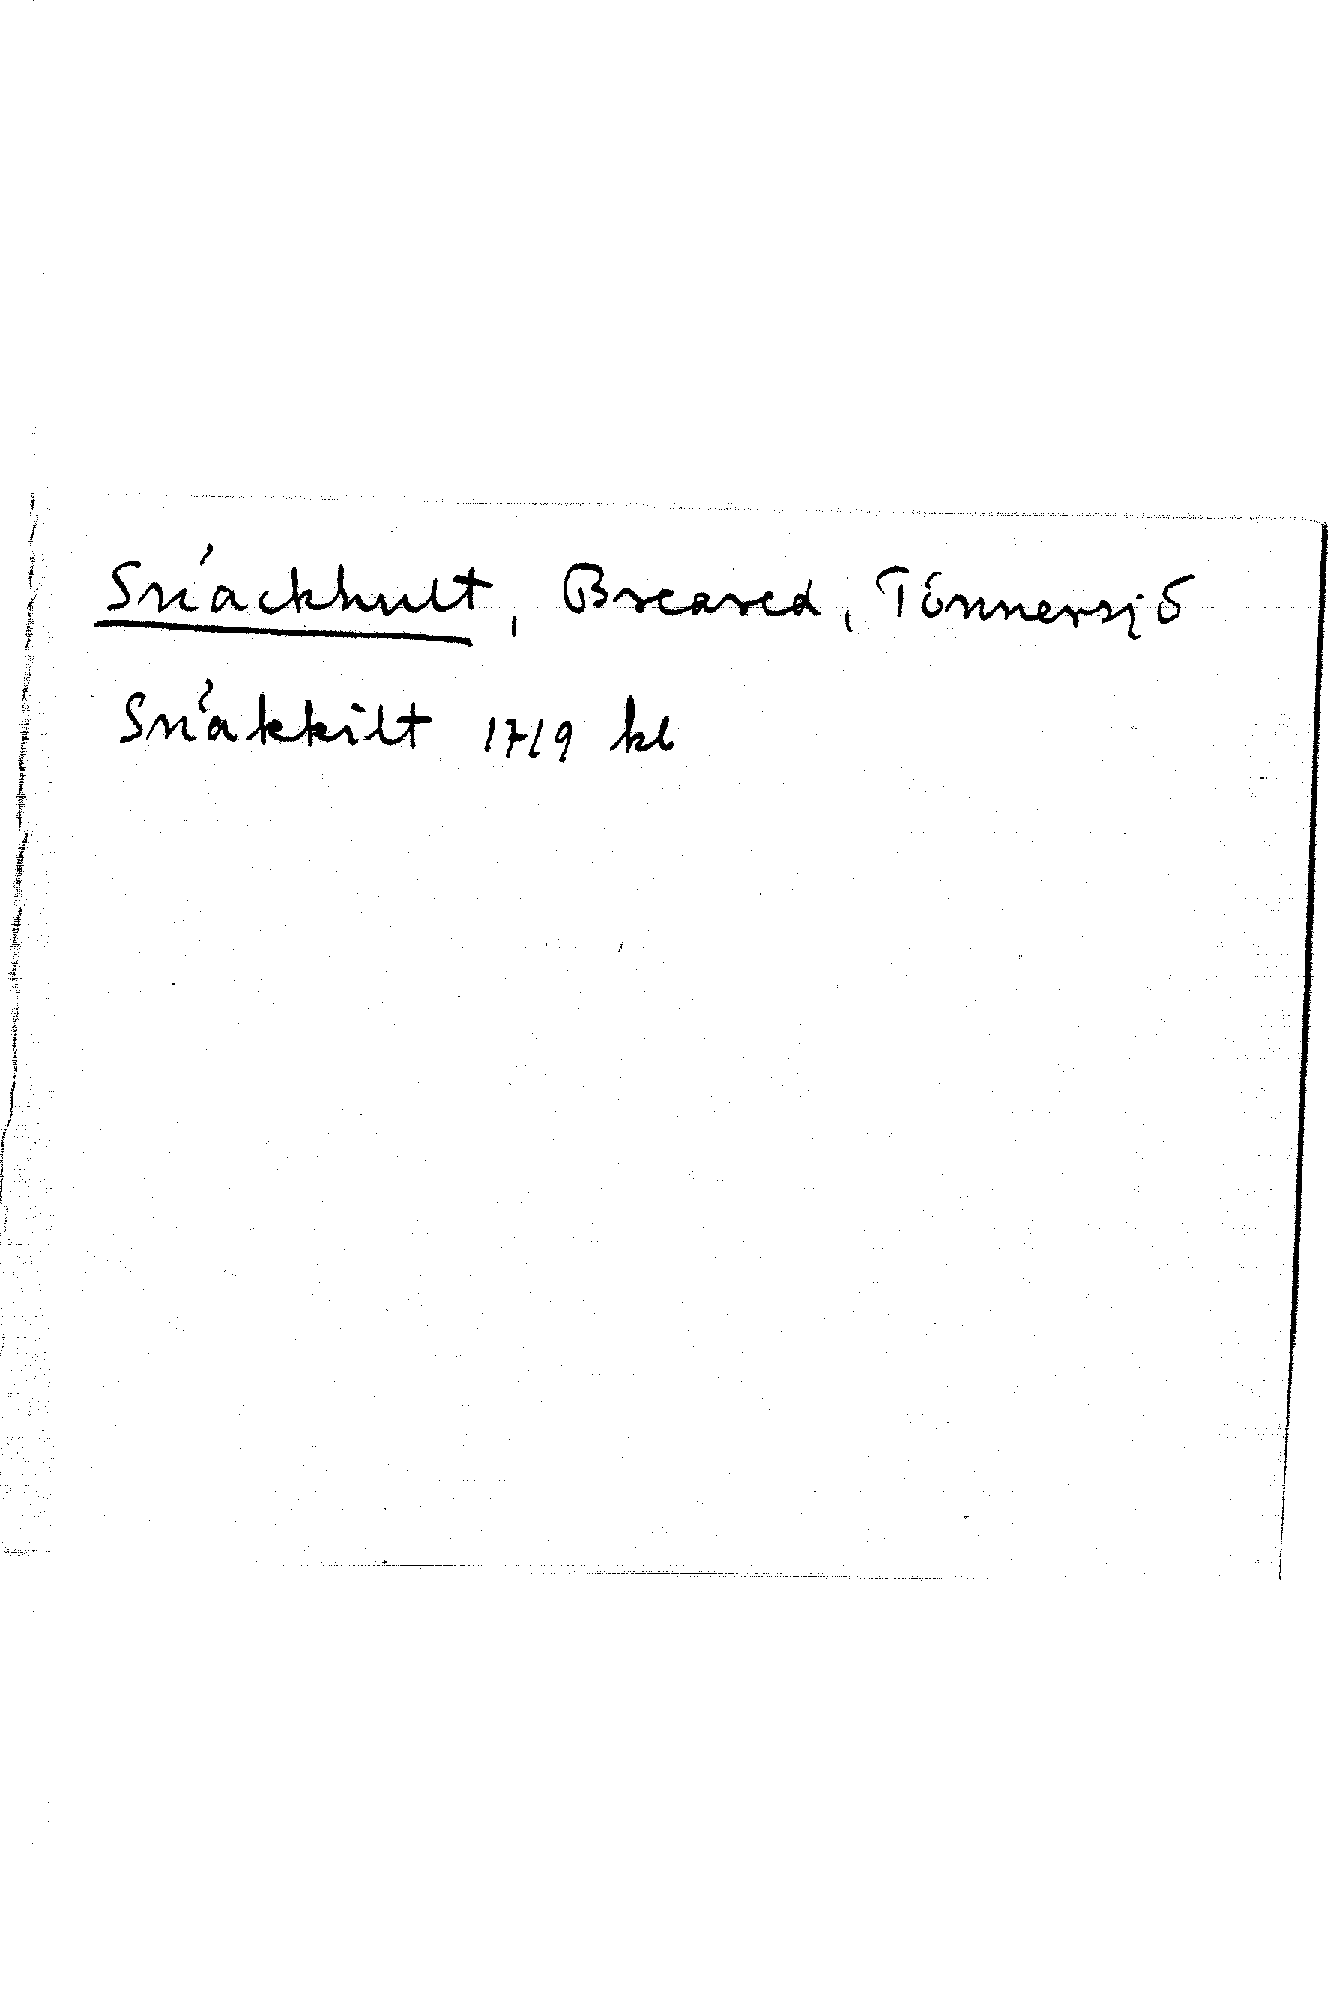 Snäckhult, Breared, Tönnersjö
Snäkkilt 1719 kb